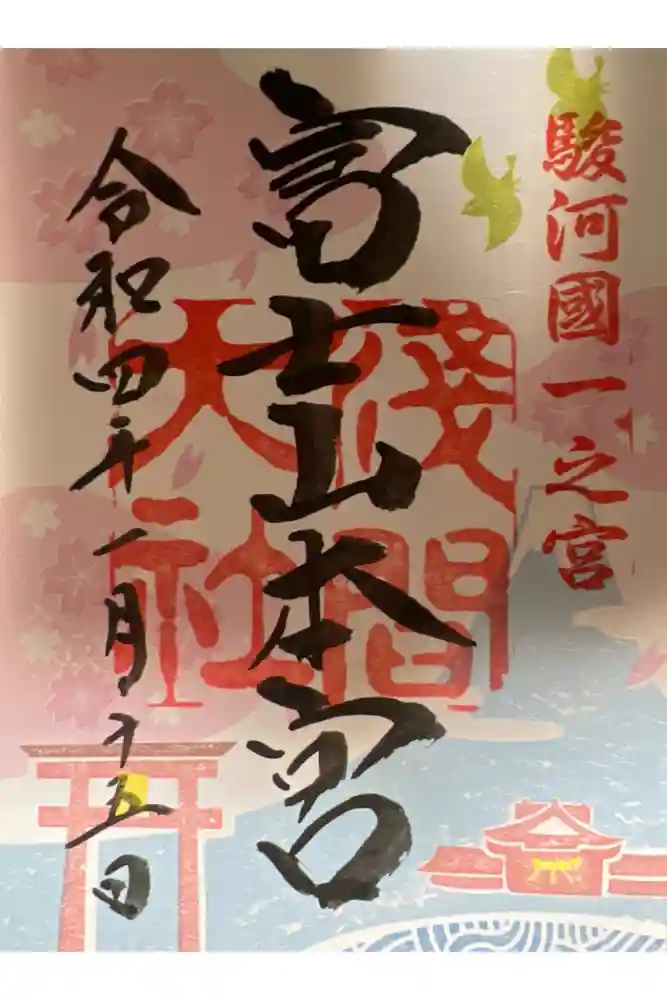 駿河國一之宮
富士山本宮
淺間大社
令和四年一月十五日